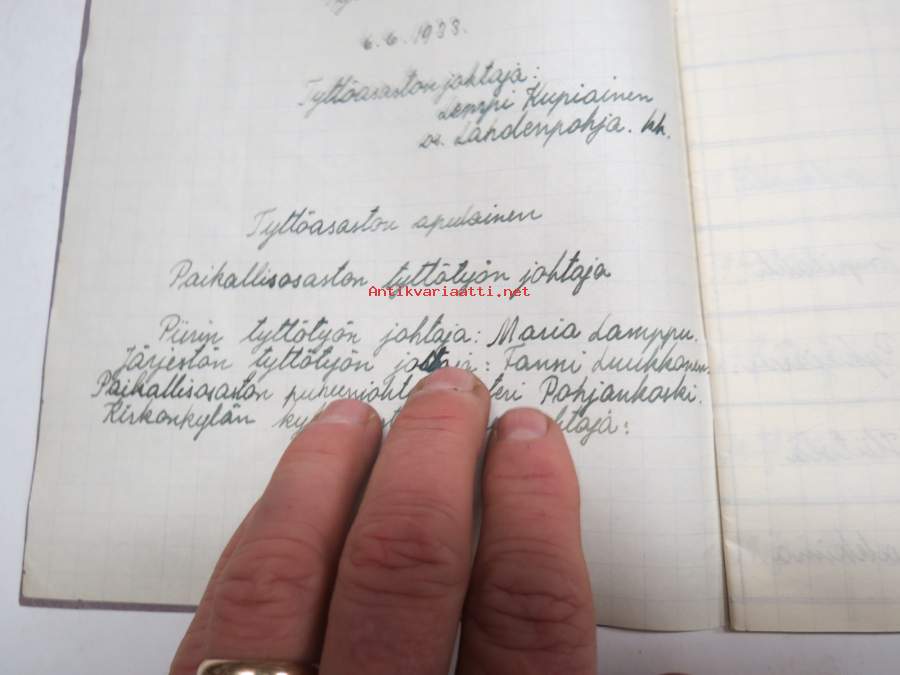 6.6.1938.
Tyttöosaston johtaja:
Lempi Kupiainen
os. Lahdenpohja. kk.
Tyttöosaston apulainen
Paikallisosaston tyttötyön johtaja
Antikvariaatti.net
Piirin tyttötyön johtaja: Maria Lamppu.
Järjestön tyttötyön johtaja: Fanni Luukkonen.
Paikallisosaston Pohjankoski.
Kirkonkylän